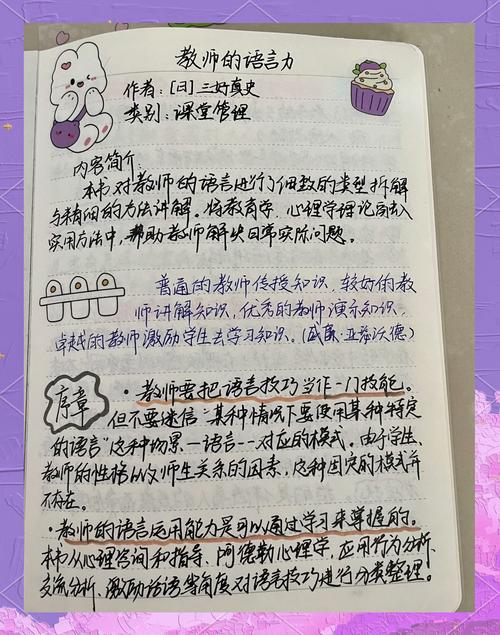 教师的语言力
作者:[日]三好真史
类别:课堂管理
内容简介:
本书对教师的语言进行了细致的类型拆解
与精细的方法讲解。将教育学、心理学理论融入
实用方法中,帮助教师解决日常实际问题。
普通的教师传授知识,较好的教
师讲解知识,优秀的教师演示知识,
卓越的教师激励学生去学习知识。(威廉·亚瑟沃德)
序章
·教师要把语言技巧当作一门技能。
但不要迷信“某种情况下要使用某种特定
的语言”这种场景—语言一一对应的模式。由于学生、
教师的性格以及师生关系的因素,这种固定的模式并
不存在。
·教师的语言运用能力是可以通过学习来掌握的。
本书从心理咨询和指导、阿德勒心理学、应用行为分析、
交流分析、激励话语等角度对语言技巧进行分类整理。